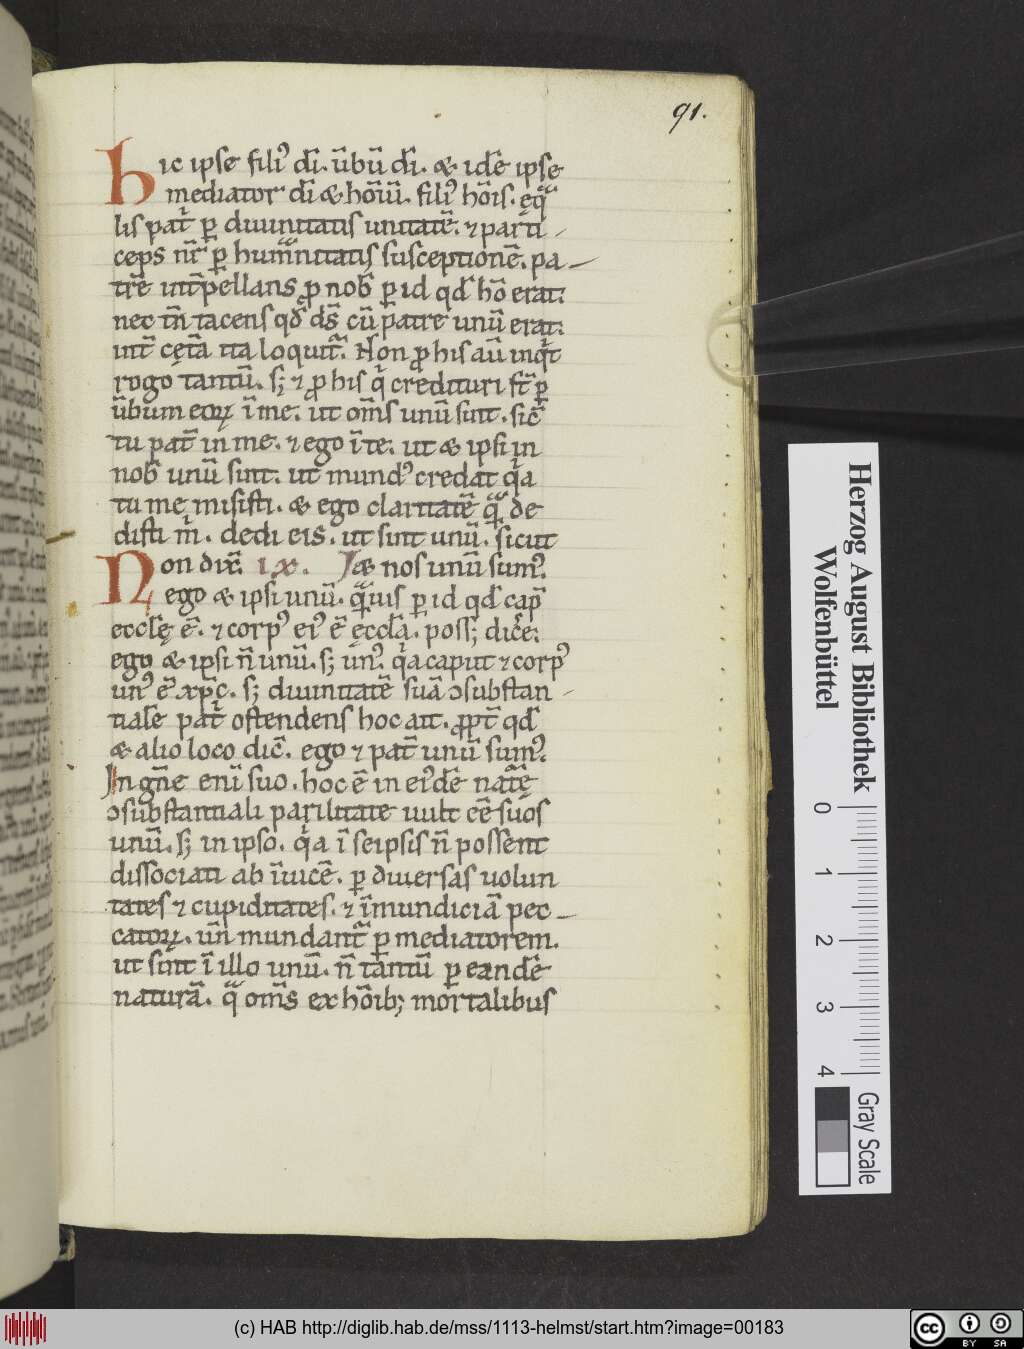 91.
hic ipse filiꝰ dı̄. ūbū dı̄. & idē ipse
mediator dı̄ & hōiū. filiꝰ hōis. ęq̄
lis pat̄ ꝑ diuinitatis unitatē. ⁊ parti
ceps nr̄ ꝑ humanitatis susceptionē. pa
trē int̄pellans ꝓ nob̄ ꝑ id qd̄ hō erat.
nec tn̄ tacens qd̄ ds̄ cū patre unū erat.
int̄ cęta ita loquit̄. Non ꝓ his aū inq̄t
rogo tantū. sꝫ ⁊ ꝓ his q̄ credituri st̄ ꝑ
ūbum eoꝝ ī me. ut om̄s unū sint. sic̄
tu pat̄ in me. ⁊ ego ī te. ut & ipsi in
nob̄ unū sint. ut mundꝰ credat q̄a
tu me misisti. & ego claritatē q̄ de
disti m̄. dedi eis. ut sint unū. sicut
Non dix̄ IX. & nos unū sumꝰ.
ego & ipsi unū. q̄uis ꝑ id qd̄ cap̄
ecclę̄ ē. ⁊ corpꝰ eiꝰ ē ęcclā. possꝫ dic̄e.
ego & ipsi n̄ unū. sꝫ unꝰ. q̄a caput ⁊ corpꝰ
unꝰ ē xp̄c. sꝫ diuinitatē suā ɔsubstan
tialē pat̄ ostendens hoc ait. ꝓpt̄ qd̄
& alio loco dic̄. ego ⁊ pat̄ unū sumꝰ.
In gn̄e enī suo. hoc ē in eiꝰdē nat̄ę
ɔsubstantiali parilitate uult eē suos
unū. sꝫ in ipso. q̄a ī seipsis n̄ possent
dissociati ab īuicē. ꝑ diuersas uolun
tates ⁊ cupiditates. ⁊ īmundiciā pec
catoꝝ. un̄ mundant̄ ꝑ mediatorem.
ut sint ī illo unū. n̄ tantū ꝑ eandē
naturā. q̄ om̄s ex hōibꝫ mortalibus
Herzog August Bibliothek
Wolfenbüttel
0 1 2 3 4
Gray Scale
(c) HAB http://diglib.hab.de/mss/1113-helmst/start.htm?image=00183
cc BY SA